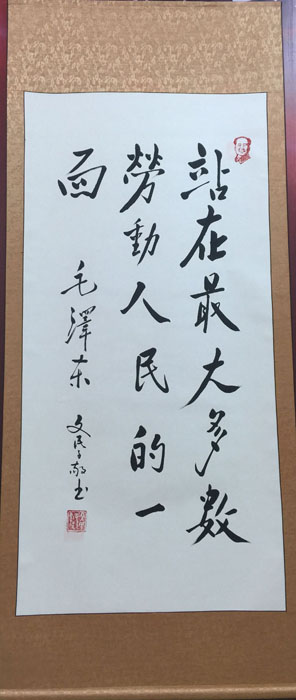 站在最大多數
勞動人民的一
面
毛澤东
文民敬书